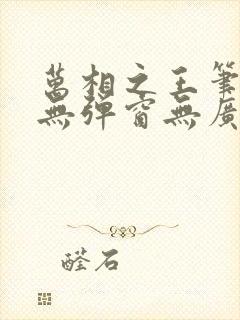 萬相之王筆
無彈窗無廣
醛石